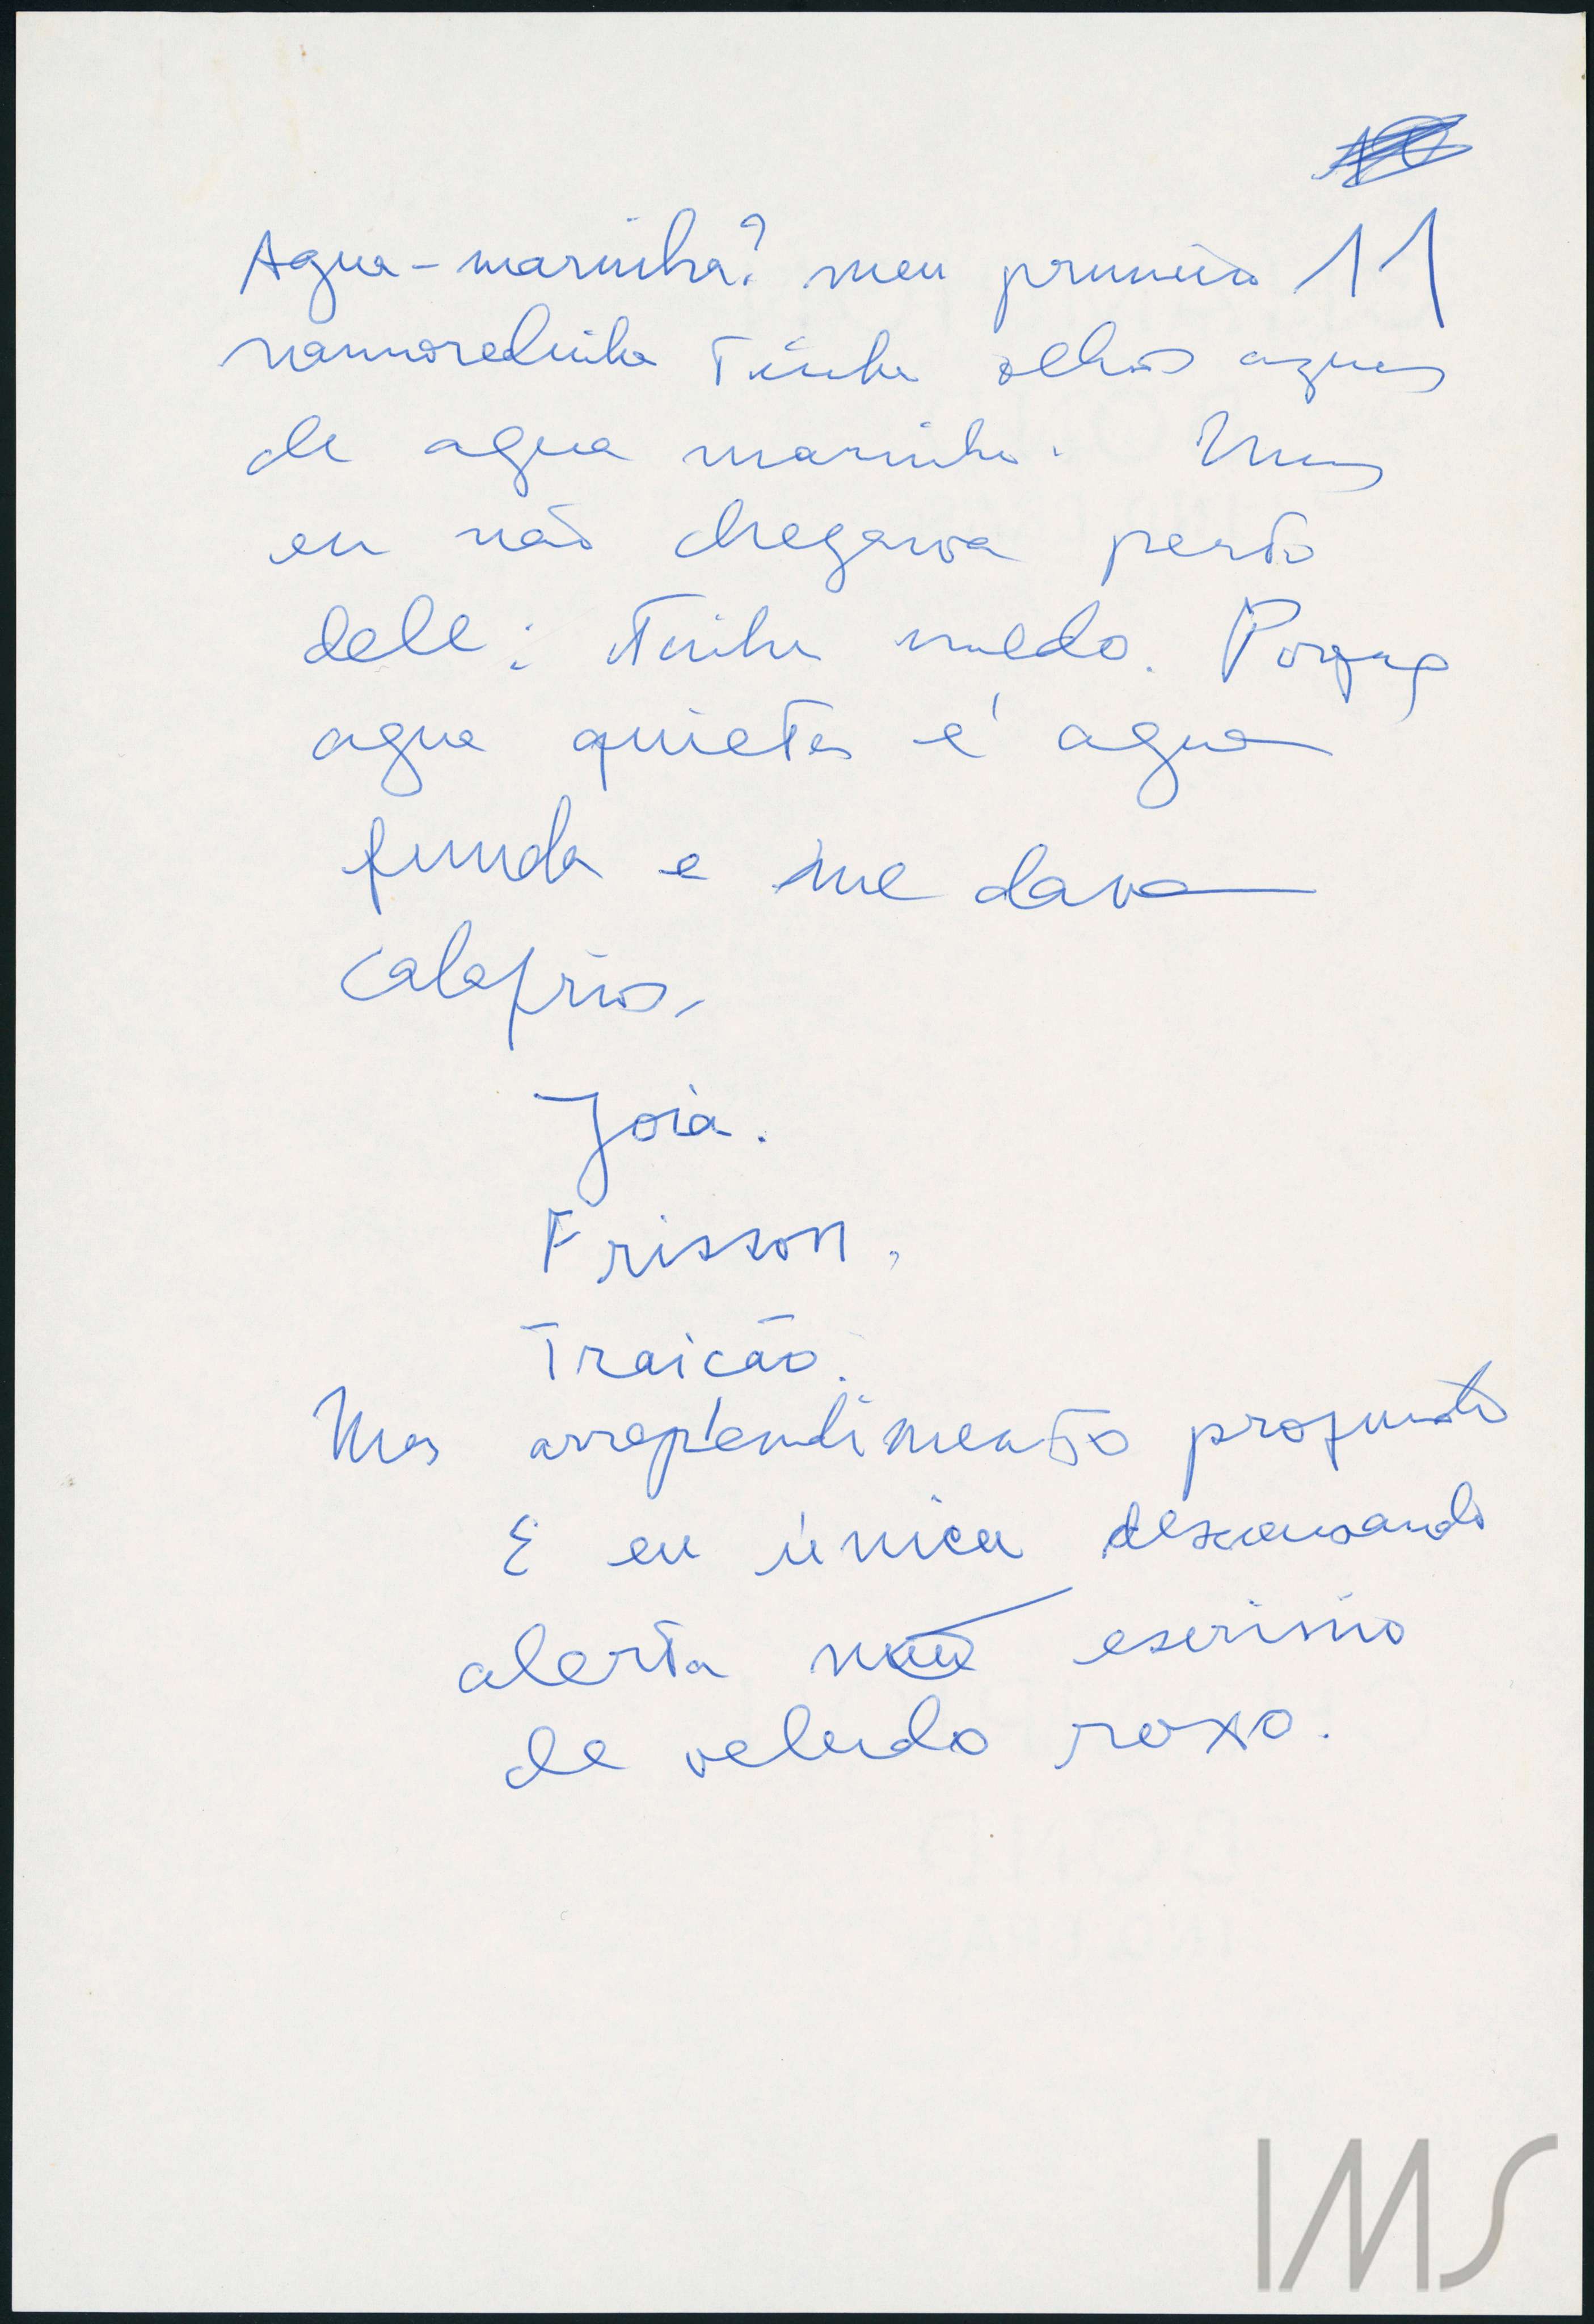 Agua-marinha? meu primeiro 11
namoradinho tinha olhos azues
de agua marinha. Mas
eu não chegava perto
dele: tinha medo. Porque
agua quieta é agua
funda e me dava
calafrios.
Joia.
Frisson.
Traicão.
Mas arrependimento profundo
E eu única descansando
alerta num escrinio
de veludo roxo.
IMS